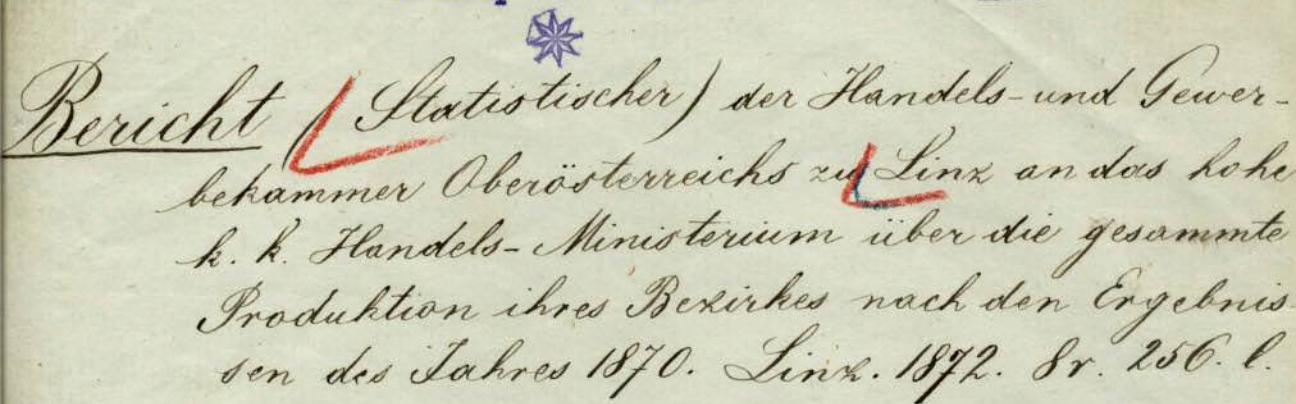 Bericht (Statistischer) der Handels- und Gewer-
bekammer Oberösterreichs zu Linz an das hohe
k. k. Handels- Ministerium über die gesammte
Produktion ihres Bezirkes nach den Ergebnis-
sen des Jahres 1870. Linz. 1872. 8r. 256. l.